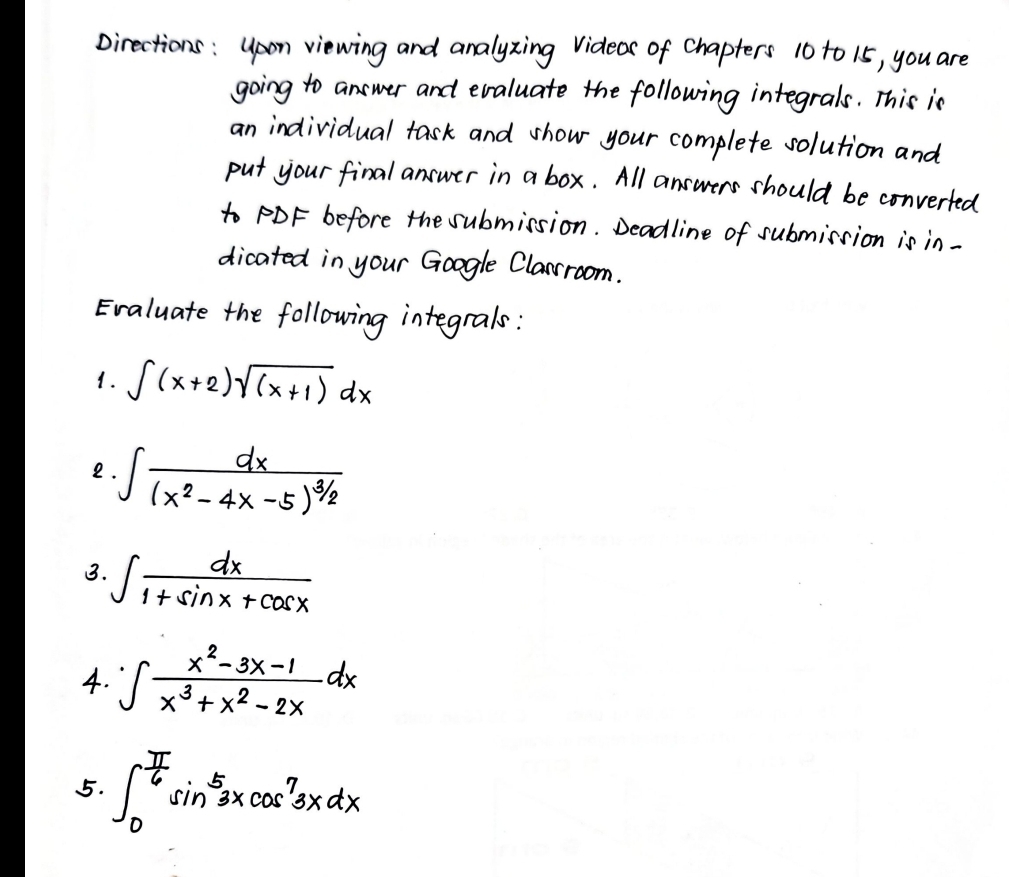 Directions: Upon viewing and analyzing Videos of Chapters 10 to 15, you are
going to answer and evaluate the following integrals. This is
an individual task and show your complete solution and
put your final answer in a box. All answers should be converted
to PDF before the submission. Deadline of submission is in-
dicated in your Google Classroom.
Evaluate the following integrals:
1. ∫(x+2)√(x+1) dx
2. ∫ dx / (x² - 4x - 5)^3/2
3. ∫ dx / 1 + sinx + cosx
4. ∫ x² - 3x - 1 / x³ + x² - 2x dx
5. ∫₀^π/6 sin⁵3x cos⁷3x dx